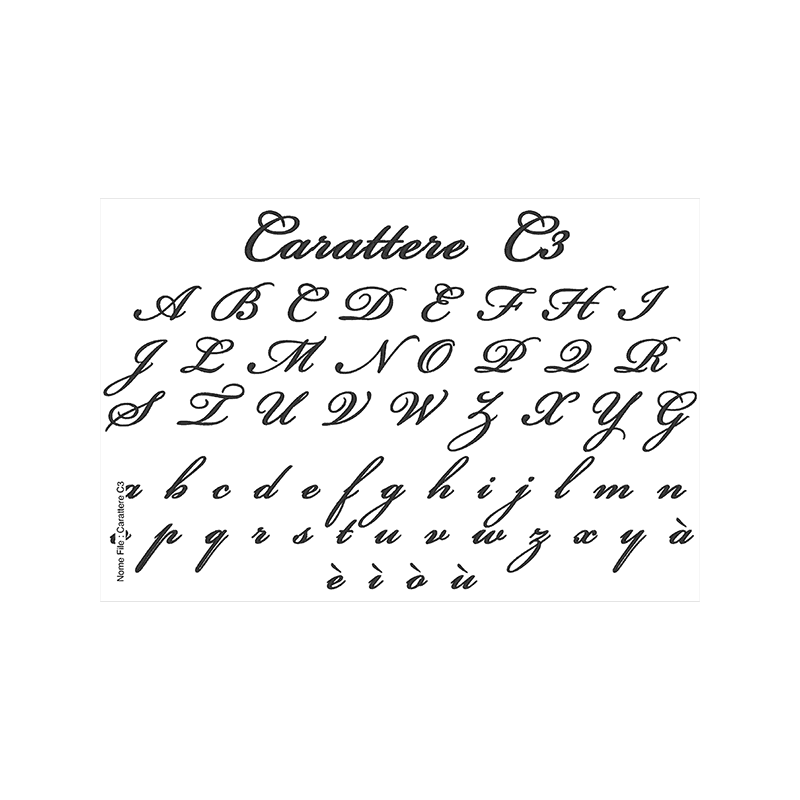 Carattere C3
A B C D E F H I
J L M N O P Q R
S T U V W Z X Y G
a b c d e f g h i j l m n
p q r s t u v w z x y à
è ì ò ù
Nome File : Carattere C3